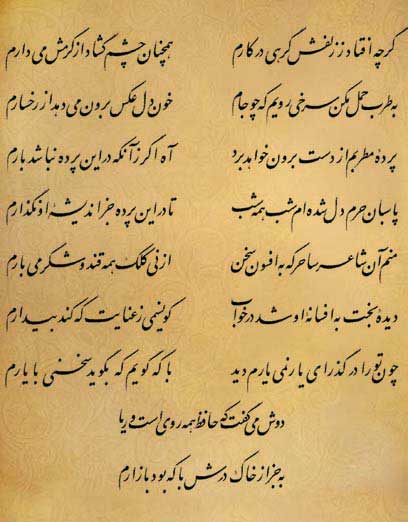 گرچه افتاد ز زلفش گرهی در کارم همچنان چشم گشاد از کرمش می دارم
به طرب حمل مکن سرخی رویم که چو جام خون دل عکس برون می دهد از رخسارم
پرده مطربم از دست برون خواهد برد آه اگر زآنکه در این پرده نباشد بارم
پاسبان حرم دل شده ام شب همه شب تا در این پرده جز اندیشه او نگذارم
منم آن شاعر ساحر که به افسون سخن از نی کلک همه قند و شکر می بارم
دیده بخت به افسانه او شد در خواب کو نسیمی ز عنایت که کند بیدارم
چون تو را در گذر ای یار نمی یارم دید با که گویم که بگوید سخنی با یارم
دوش می گفت که حافظ همه روی است و ریا
به جز از خاک درش با که بود بازارم